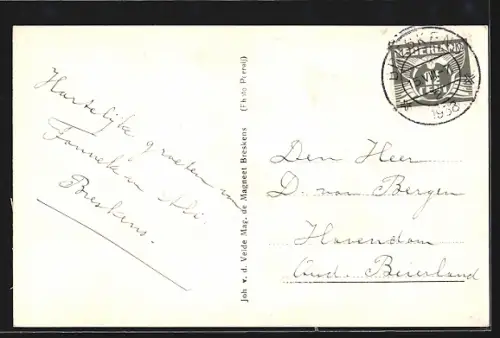 Hartelijke groeten van
Janneke en Adri.
Breskens.
Joh v. d. Velde Mag. de Magneet Breskens (Photo Perraij)
NEDERLAND
1938
Den Heer
D. van Bergen
Havendam
Oud. Beierland